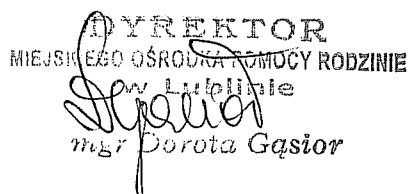 DYREKTOR
MIEJSKIEGO OŚRODKA POMOCY RODZINIE
w Lublinie
mgr Dorota Gąsior